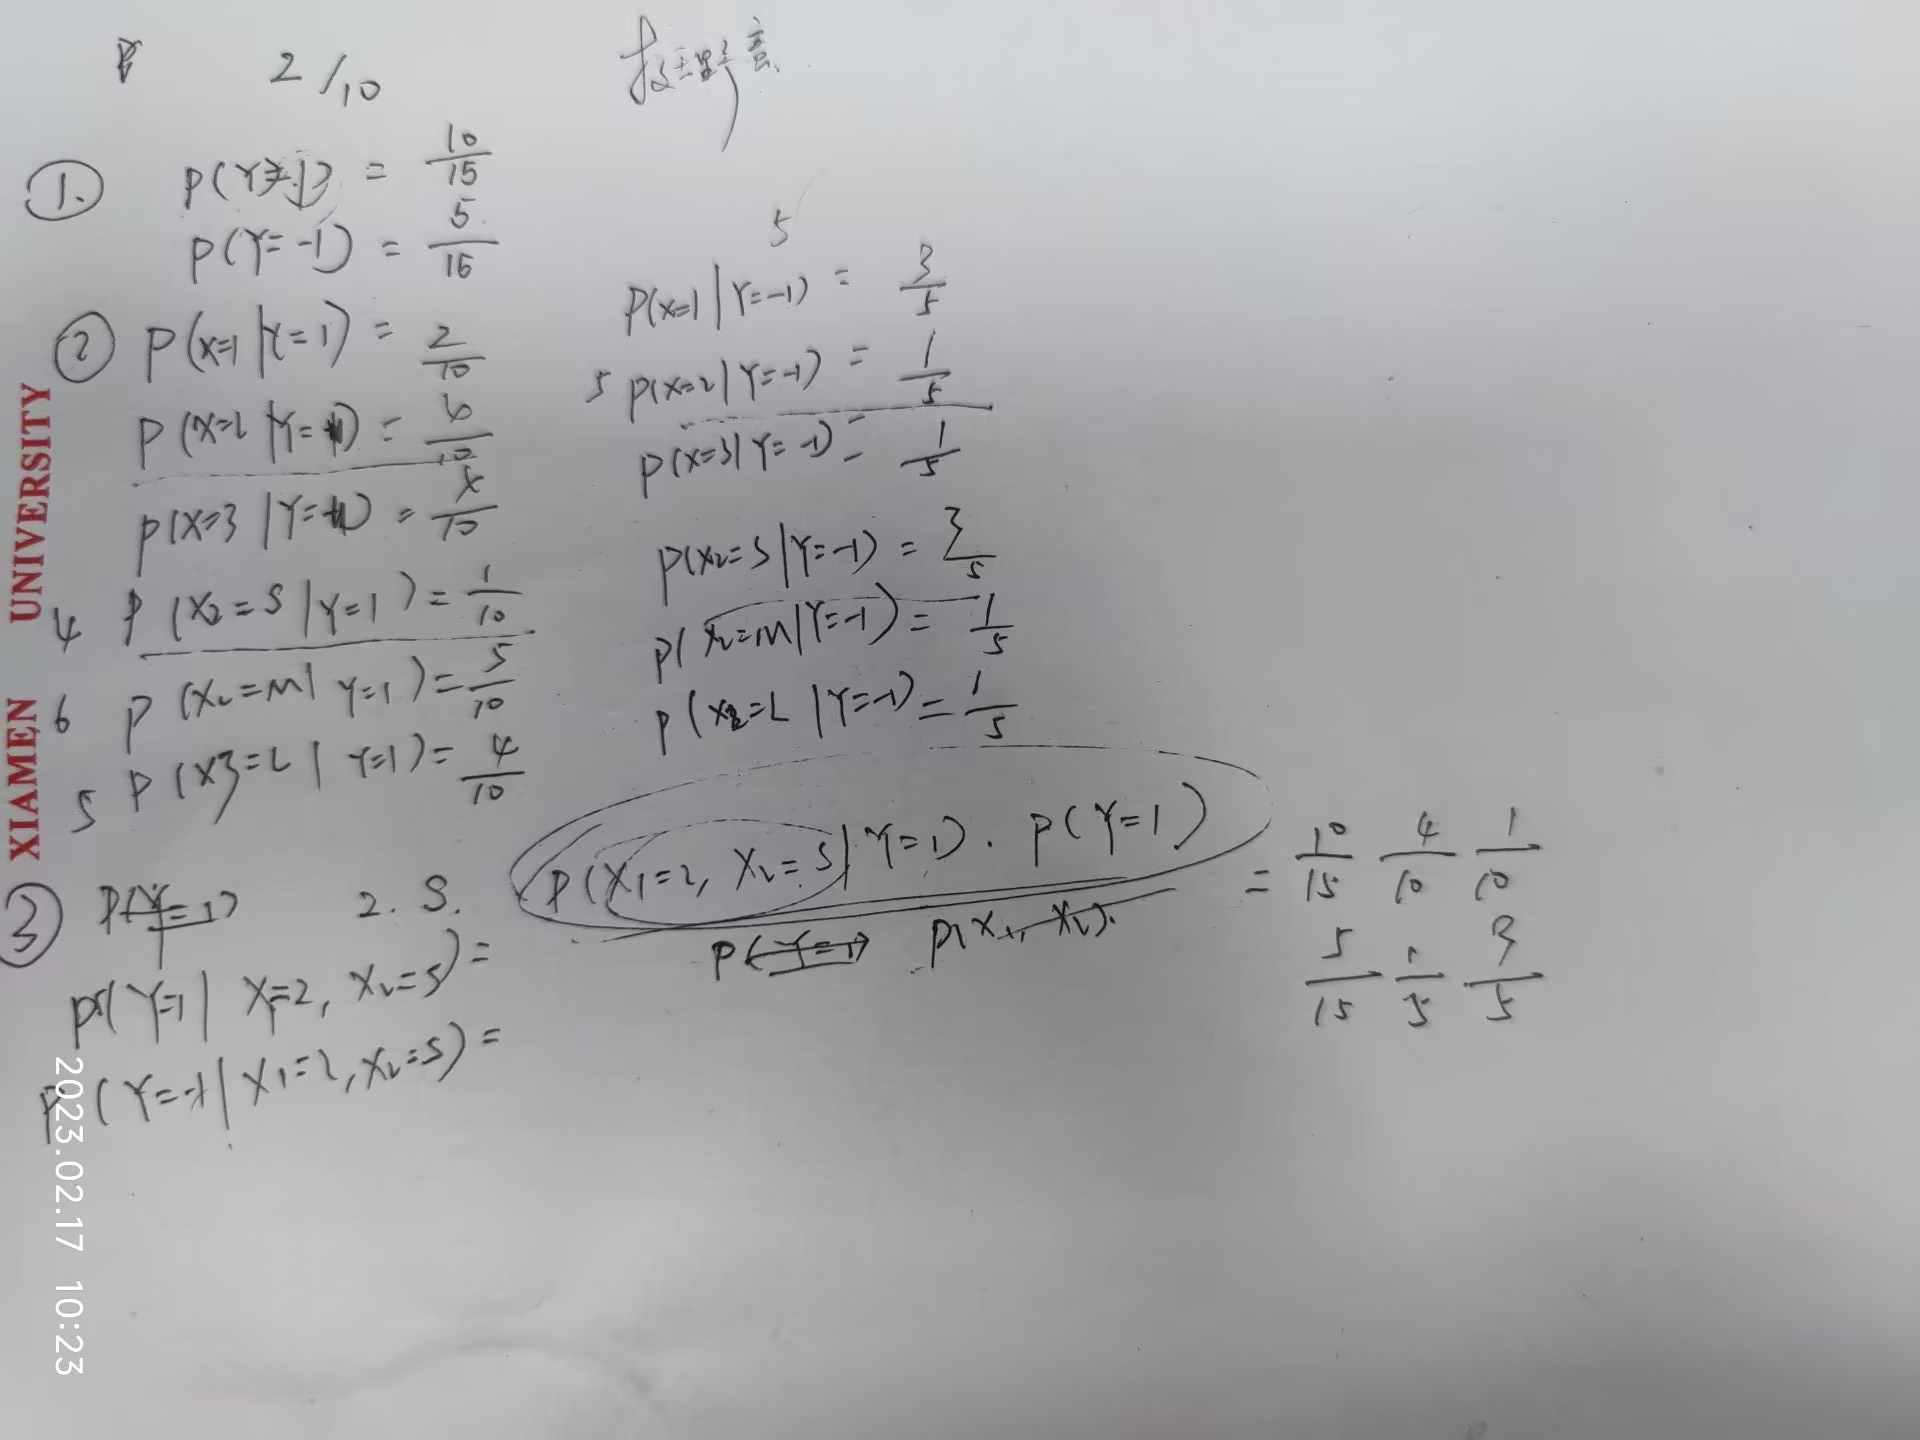 2/10
①. P(Y=1) = 10/15
P(Y=-1) = 5/15
② P(X=1|Y=1) = 2/10
P(X=2|Y=1) = 4/10
P(X=3|Y=1) = 4/10
4 P(X2=S|Y=1) = 1/10
6 P(X2=M|Y=1) = 5/10
5 P(X3=L|Y=1) = 4/10
5
P(X=1|Y=-1) = 3/5
5 P(X=2|Y=-1) = 1/5
P(X=3|Y=-1) = 1/5
P(X2=S|Y=-1) = 3/5
P(X2=M|Y=-1) = 1/5
P(X2=L|Y=-1) = 1/5
③ P(Y=1) 2. S.
P(Y=1|X1=2, X2=S) =
P(X1=2, X2=S|Y=1). P(Y=1)
P(Y=1) P(X1, X2).
= 10/15 4/10 1/10
5/15 1/5 3/5
P(Y=-1|X1=2, X2=S) =
XIAMEN UNIVERSITY
2023.02.17 10:23